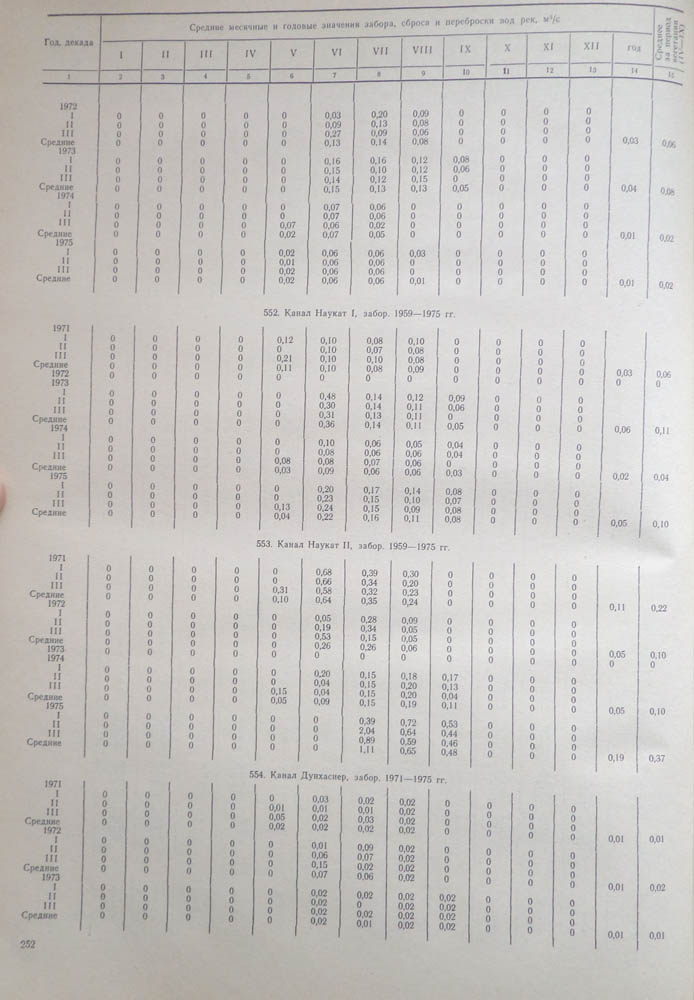 Год, декада | Средние месячные и годовые значения забора, сброса и переброски вод рек, м³/с | Среднее за период вегетации (IV—IX)
I | II | III | IV | V | VI | VII | VIII | IX | X | XI | XII | год
1 | 2 | 3 | 4 | 5 | 6 | 7 | 8 | 9 | 10 | 11 | 12 | 13 | 14 | 15
1972
I 0 0 0 0 0 0,03 0,20 0,09 0 0 0 0
II 0 0 0 0 0 0,09 0,13 0,08 0 0 0 0
III 0 0 0 0 0 0,27 0,09 0,06 0 0 0 0
Средние 0 0 0 0 0 0,13 0,14 0,08 0 0 0 0 0,03 0,06
1973
I 0 0 0 0 0 0,16 0,16 0,12 0,08 0 0 0
II 0 0 0 0 0 0,15 0,10 0,12 0,06 0 0 0
III 0 0 0 0 0 0,14 0,12 0,15 0 0 0 0
Средние 0 0 0 0 0 0,15 0,13 0,13 0,05 0 0 0 0,04 0,08
1974
I 0 0 0 0 0 0,07 0,06 0 0 0 0 0
II 0 0 0 0 0 0,07 0,06 0 0 0 0 0
III 0 0 0 0 0,07 0,06 0,02 0 0 0 0 0
Средние 0 0 0 0 0,02 0,07 0,05 0 0 0 0 0 0,01 0,02
1975
I 0 0 0 0 0,02 0,06 0,06 0,03 0 0 0 0
II 0 0 0 0 0,01 0,06 0,06 0 0 0 0 0
III 0 0 0 0 0,02 0,06 0,06 0 0 0 0 0
Средние 0 0 0 0 0,02 0,06 0,06 0,01 0 0 0 0 0,01 0,02
552. Канал Наукат I, забор. 1959—1975 гг.
1971
I 0 0 0 0 0,12 0,10 0,08 0,10 0 0 0 0
II 0 0 0 0 0 0,10 0,07 0,08 0 0 0 0
III 0 0 0 0 0,21 0,10 0,10 0,08 0 0 0 0
Средние 0 0 0 0 0,11 0,10 0,08 0,09 0 0 0 0 0,03 0,06
1972 0 0 0 0 0 0 0 0 0 0 0 0 0 0
1973
I 0 0 0 0 0 0,48 0,14 0,12 0,09 0 0 0
II 0 0 0 0 0 0,30 0,14 0,11 0,06 0 0 0
III 0 0 0 0 0 0,31 0,13 0,11 0 0 0 0
Средние 0 0 0 0 0 0,36 0,14 0,11 0,05 0 0 0 0,06 0,11
1974
I 0 0 0 0 0 0,10 0,06 0,05 0,04 0 0 0
II 0 0 0 0 0 0,08 0,06 0,06 0,04 0 0 0
III 0 0 0 0 0,08 0,08 0,07 0,06 0 0 0 0
Средние 0 0 0 0 0,03 0,09 0,06 0,06 0,03 0 0 0 0,02 0,04
1975
I 0 0 0 0 0 0,20 0,17 0,14 0,08 0 0 0
II 0 0 0 0 0 0,23 0,15 0,10 0,07 0 0 0
III 0 0 0 0 0,13 0,24 0,15 0,09 0,08 0 0 0
Средние 0 0 0 0 0,04 0,22 0,16 0,11 0,08 0 0 0 0,05 0,10
553. Канал Наукат II, забор. 1959—1975 гг.
1971
I 0 0 0 0 0 0,68 0,39 0,30 0 0 0 0
II 0 0 0 0 0 0,66 0,34 0,20 0 0 0 0
III 0 0 0 0 0,31 0,58 0,32 0,23 0 0 0 0
Средние 0 0 0 0 0,10 0,64 0,35 0,24 0 0 0 0 0,11 0,22
1972
I 0 0 0 0 0 0,05 0,28 0,09 0 0 0 0
II 0 0 0 0 0 0,19 0,34 0,05 0 0 0 0
III 0 0 0 0 0 0,53 0,15 0,05 0 0 0 0
Средние 0 0 0 0 0 0,26 0,26 0,06 0 0 0 0 0,05 0,10
1973 0 0 0 0 0 0 0 0 0 0 0 0 0 0
1974
I 0 0 0 0 0 0,20 0,15 0,18 0,17 0 0 0
II 0 0 0 0 0 0,04 0,15 0,20 0,13 0 0 0
III 0 0 0 0 0,15 0,04 0,15 0,20 0,04 0 0 0
Средние 0 0 0 0 0,05 0,09 0,15 0,19 0,11 0 0 0 0,05 0,10
1975
I 0 0 0 0 0 0 0,39 0,72 0,53 0 0 0
II 0 0 0 0 0 0 2,04 0,64 0,44 0 0 0
III 0 0 0 0 0 0 0,89 0,59 0,46 0 0 0
Средние 0 0 0 0 0 0 1,11 0,65 0,48 0 0 0 0,19 0,37
554. Канал Дунхаснер, забор, 1971—1975 гг.
1971
I 0 0 0 0 0 0,03 0,02 0,02 0 0 0 0
II 0 0 0 0 0,01 0,01 0,01 0,02 0 0 0 0
III 0 0 0 0 0,05 0,02 0,03 0,02 0 0 0 0
Средние 0 0 0 0 0,02 0,02 0,02 0,02 0 0 0 0 0,01 0,01
1972
I 0 0 0 0 0 0,01 0,09 0,02 0 0 0 0
II 0 0 0 0 0 0,06 0,07 0,02 0 0 0 0
III 0 0 0 0 0 0,15 0,02 0,02 0 0 0 0
Средние 0 0 0 0 0 0,07 0,06 0,02 0 0 0 0 0,01 0,02
1973
I 0 0 0 0 0 0,02 0,02 0,02 0,02 0 0 0
II 0 0 0 0 0 0,02 0 0,02 0,02 0 0 0
III 0 0 0 0 0 0,02 0,02 0,02 0,02 0 0 0
Средние 0 0 0 0 0 0,02 0,01 0,02 0,02 0 0 0 0,01 0,01
252